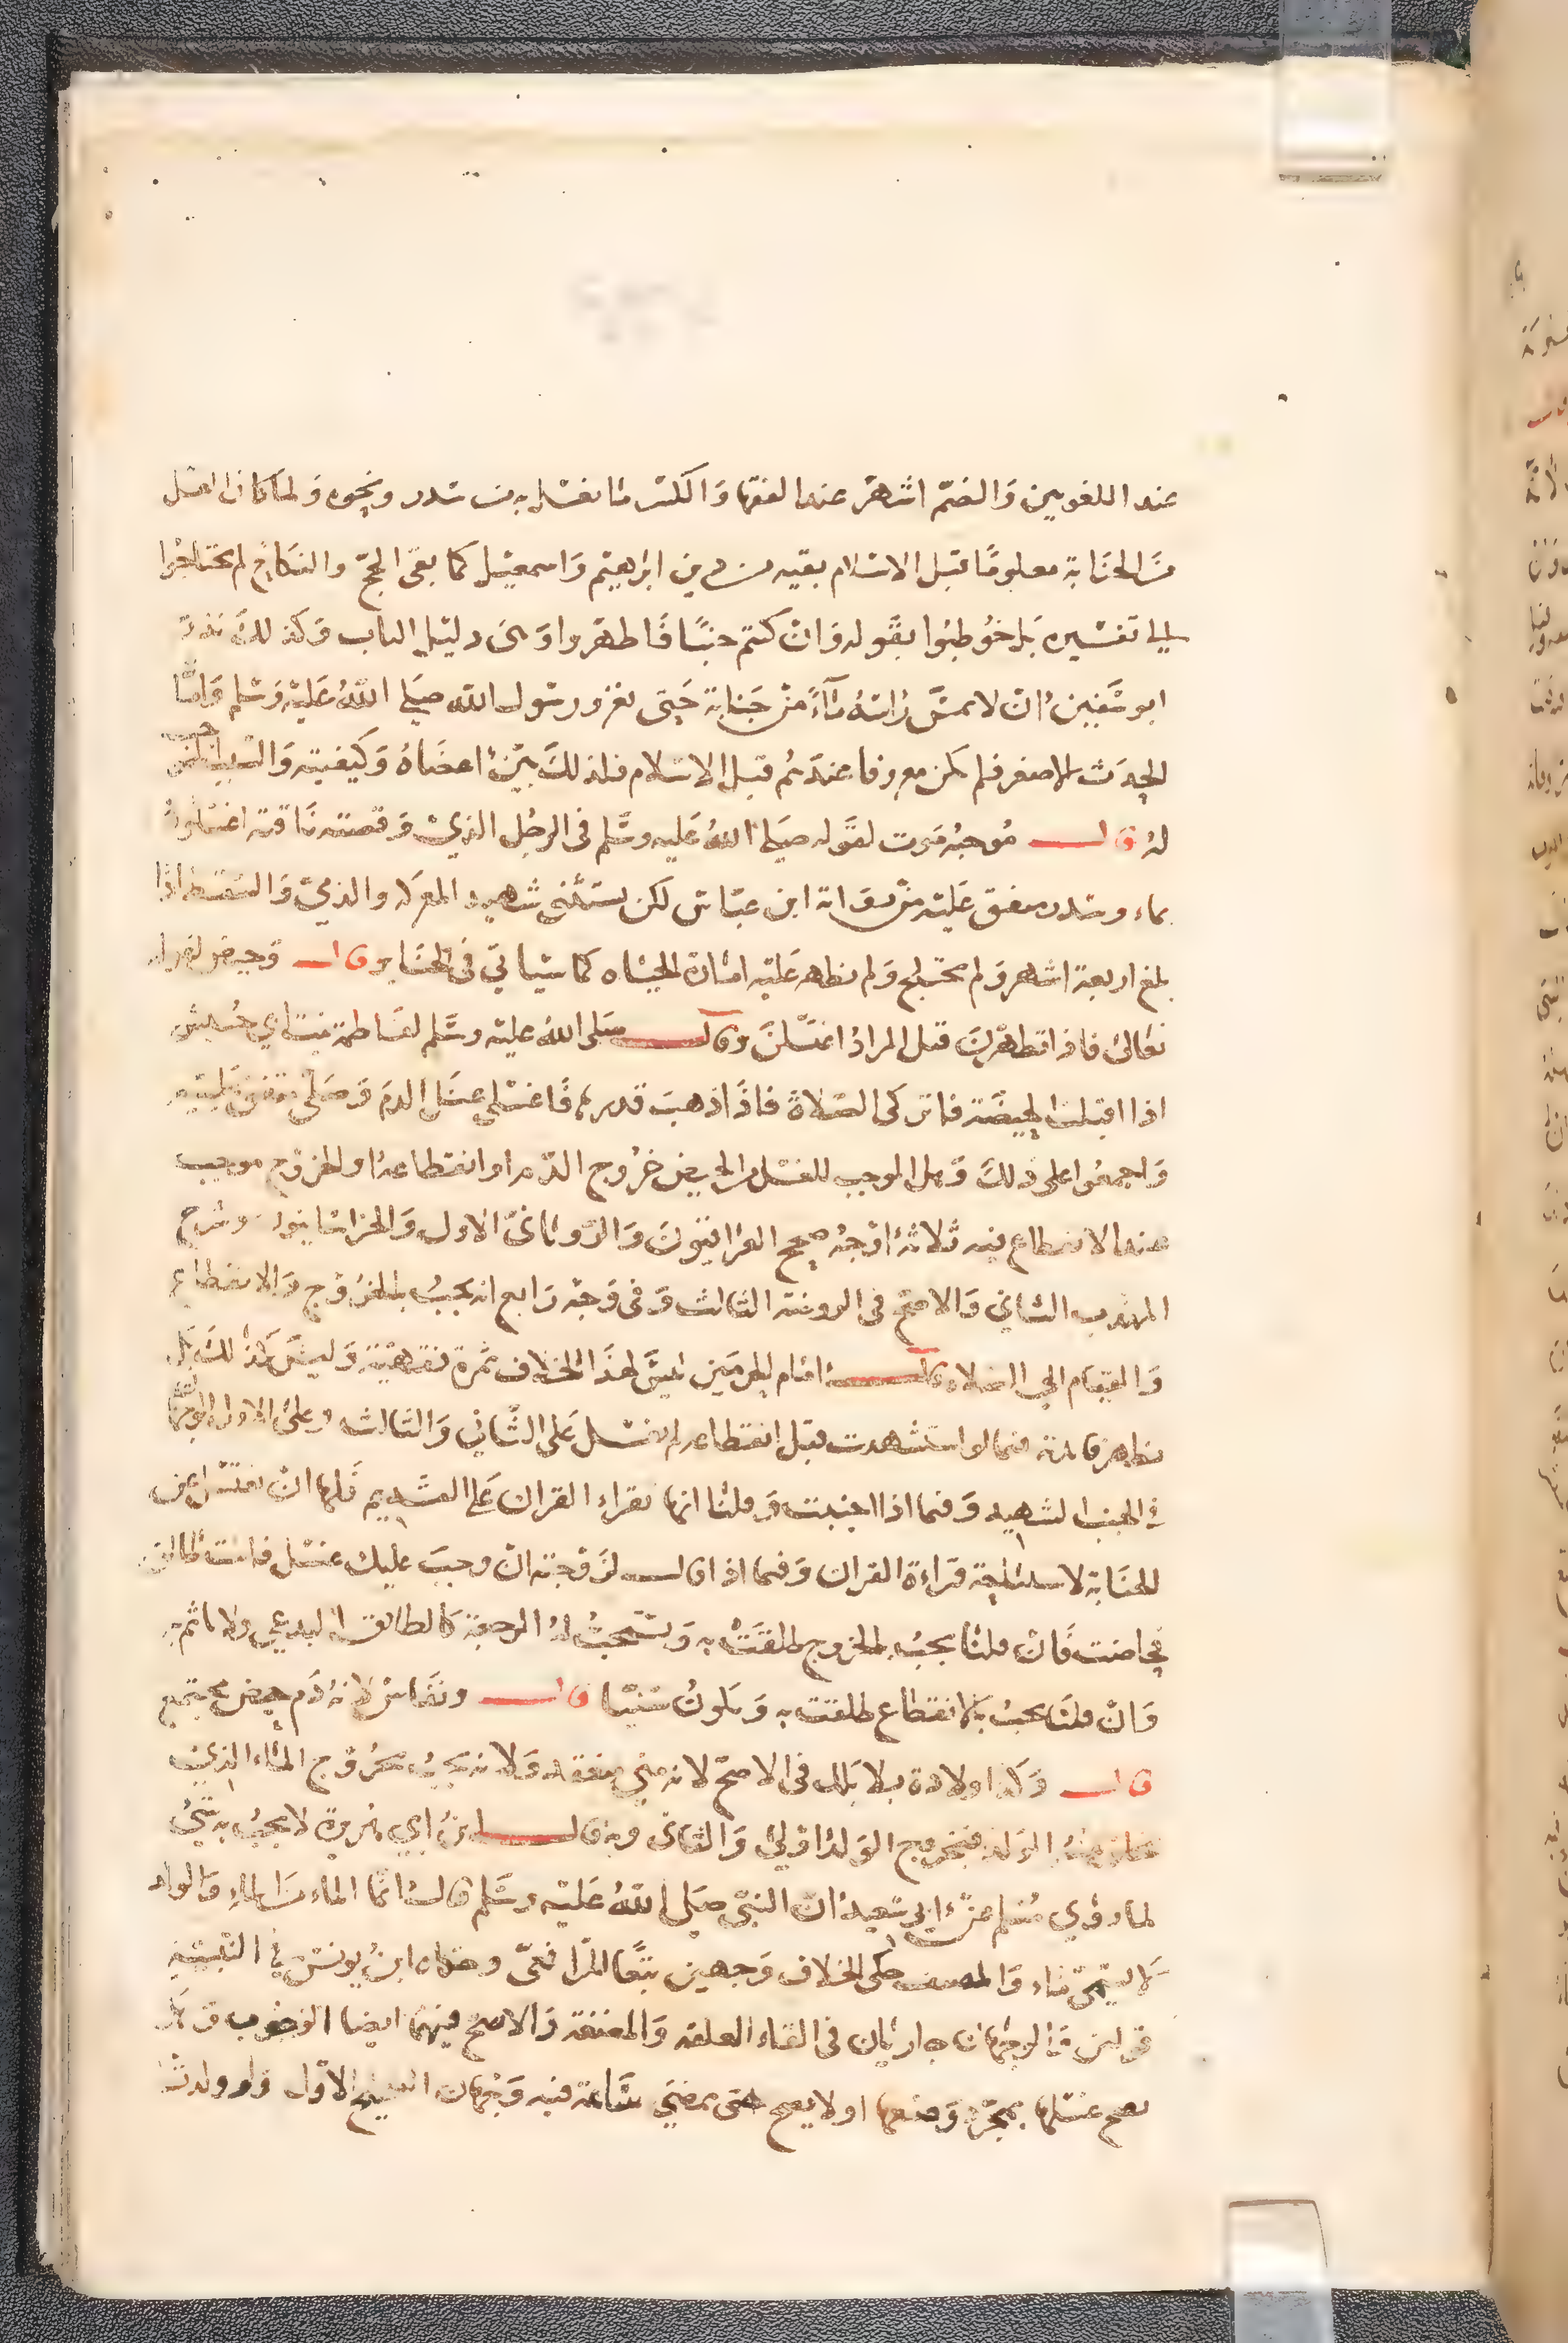 عند اللغويين وَالضمّ اشهرُ عند الفقها وَالكسر ما يغسل به من سدر ونحوه وَلما كان الغسل
منَ الجنَابة معلومًا قبل الاسْلام بقيه من دين ابرَاهيم وَاسمعيْل كما بقى الحجّ والنكَاح لم يحتَاجُوا
الى تفسْيره بَل خُوطبُوا بقَوله وَانْ كنتم جنبًا فَاطهرُوا وَهىَ دليْل الباب وَكذلكَ نذرَ
ابو سُفيَن انْ لا يمسَّ رَاسَهُ مَآءٌ منْ جَنابة حَتى يغزو رسُول الله صَلى اللهُ عَليْه وَسْلم وَامَّا
الحدَث الاصغر فلم يكن معروفا عندَهُم قبل الاسْلام فلذلكَ بيّنَ اعضَاهُ وَكيفيته وَالسَبب الموجب
لهُ قال مُوجبُه مَوت لقَوله صَلى اللهُ عَليه وسَّلم فى الرجُل الذيْ وَقصته نَاقته اغسْلوهُ
بماء وسدر متفق عَليْه منْ روَاية ابن عبّاسْ لكن يستَثنى شهيد المعرَكه والذمىّ وَالسْقط اذَا
بلغ اربعَة اشهر وَلم يختلج وَلم يظهر عَليْه امَارَة الحيَاه كما سْياتي فى الجنَايز قال وَحيض لقوله
تعَالىَ فاذا تطهّرْنَ قيل المرادُ اغتسْلنَ وقال صَلى اللهُ عليْه وسَّلم لفَاطمَة بنت ابي حُبيش
اذا اقبلت الحيضَة فاتركى الصَلاة فاذَا ذهبَ قدرها فَاغسْلى عنكَ الدمَ وَصَلّى متفق عَليْه
وَاجمعُوا على ذلكَ وَهل الموجب للغسْل من الحيض خرُوج الدّم او انقطاعهُ او الخروُج موجب
عند الانقطاع فيه ثلاثةُ اوْجُه صحح العرَاقيّونَ وَالرّويَانىّ الاول وَالخرَاسَانيون وشرح
المهذب الثاني وَالاصَحّ فى الروضَة الثالث وَفى وَجه رَابع انه يجبُ بالخرُوْج وَالانقطاع
وَالقيَام الى الصَلاه قال امَام الحرمَين ليسَّ لهذَا الخلاف ثمرَة فقهيّة وَليسَّ كذلكَ بَل
يظهر فَايدته فيما لو استشهدت قبل انقطاعه لم تغسْل عَلى الثاني وَالثالث وعلىَ الاول الوجهَان
في الجنب الشهيد وَفيما اذا اجنبت وَقلنَا انها تقراء القران عَلى القديم فَلها انْ تغتسْل عن
الجنَابة لاستباحَة قرَاءة القران وَفيما اذا قال لزَوْجته انْ وجبَ عليك غسْل فانت طالق
فحاضت فَانْ قلنَا يجبُ بالخروج طلقَتْ به وَيستحبُ لهُ الرجعَة كَالطالق البدعي ولا ياثم به
وَانْ قلنَا يجبُ بالانقطَاع طلقت به وَيكونُ سُنيّا قال ونفَاسْ لانهُ دَم حيض مجتمع
قال وَكذا ولادة بلا بلل فى الاصحّ لانه منىّ منعقد وَلانه يجبُ بخرُوْج المَاء الذي
يخلق منهُ الوَلد فبخروج الوَلد اوْلى وَالثانى وبه قال ابنُ ابي هُريرَة لا يجبُ به شَيُ
لما روَي مُسْلم عنْ ابى سَعيد انّ النبيّ صَلى اللهُ عَليْه وسَّلم قالَ انمَا الماء منَ الماءِ وَالولد
لا يسَمّى مَاء وَالمصنف حكى الخلاف وَجهين تبَعًا للرَافعىّ وحكاه ابنُ يونسْ في التنبيه
قولين وَالوجهَان جاريَان فى القاء العلقه وَالمضغه وَالاصح فيهما ايضا الوجُوب وَهَل
يصح غسْلها بمجرّد وَضعها او لا يصح حتى يمضىَ سَّاعة فيه وَجهَان الصحيح الاوّل وَلو ولدتْ